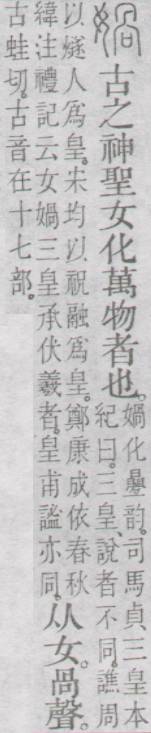 媧 古之神聖女化萬物者也。
媧化曡韵。司馬貞三皇本
紀曰。三皇說者不同。譙周
以燧人爲皇。宋均以祝融爲皇。鄭康成依春秋
緯注禮記云女媧三皇承伏羲者。皇甫謐亦同。
从女。咼聲。
古蛙切。古音在十七部。